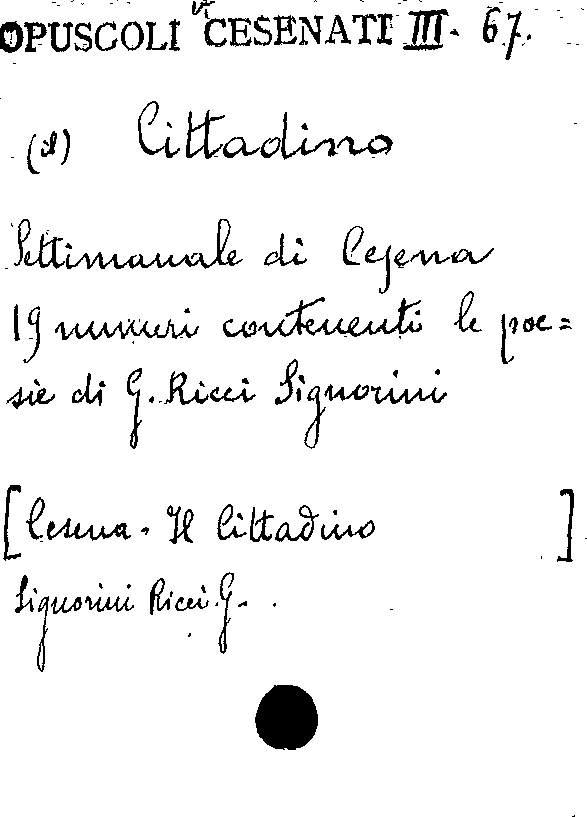 OPUSCOLI CESENATI III. 67.
(il) Cittadino
Settimanale di Cesena
19 numeri contenenti le poe=
sie di G. Ricci Signorini
[Cesena. Il Cittadino ]
Signorini Ricci G.